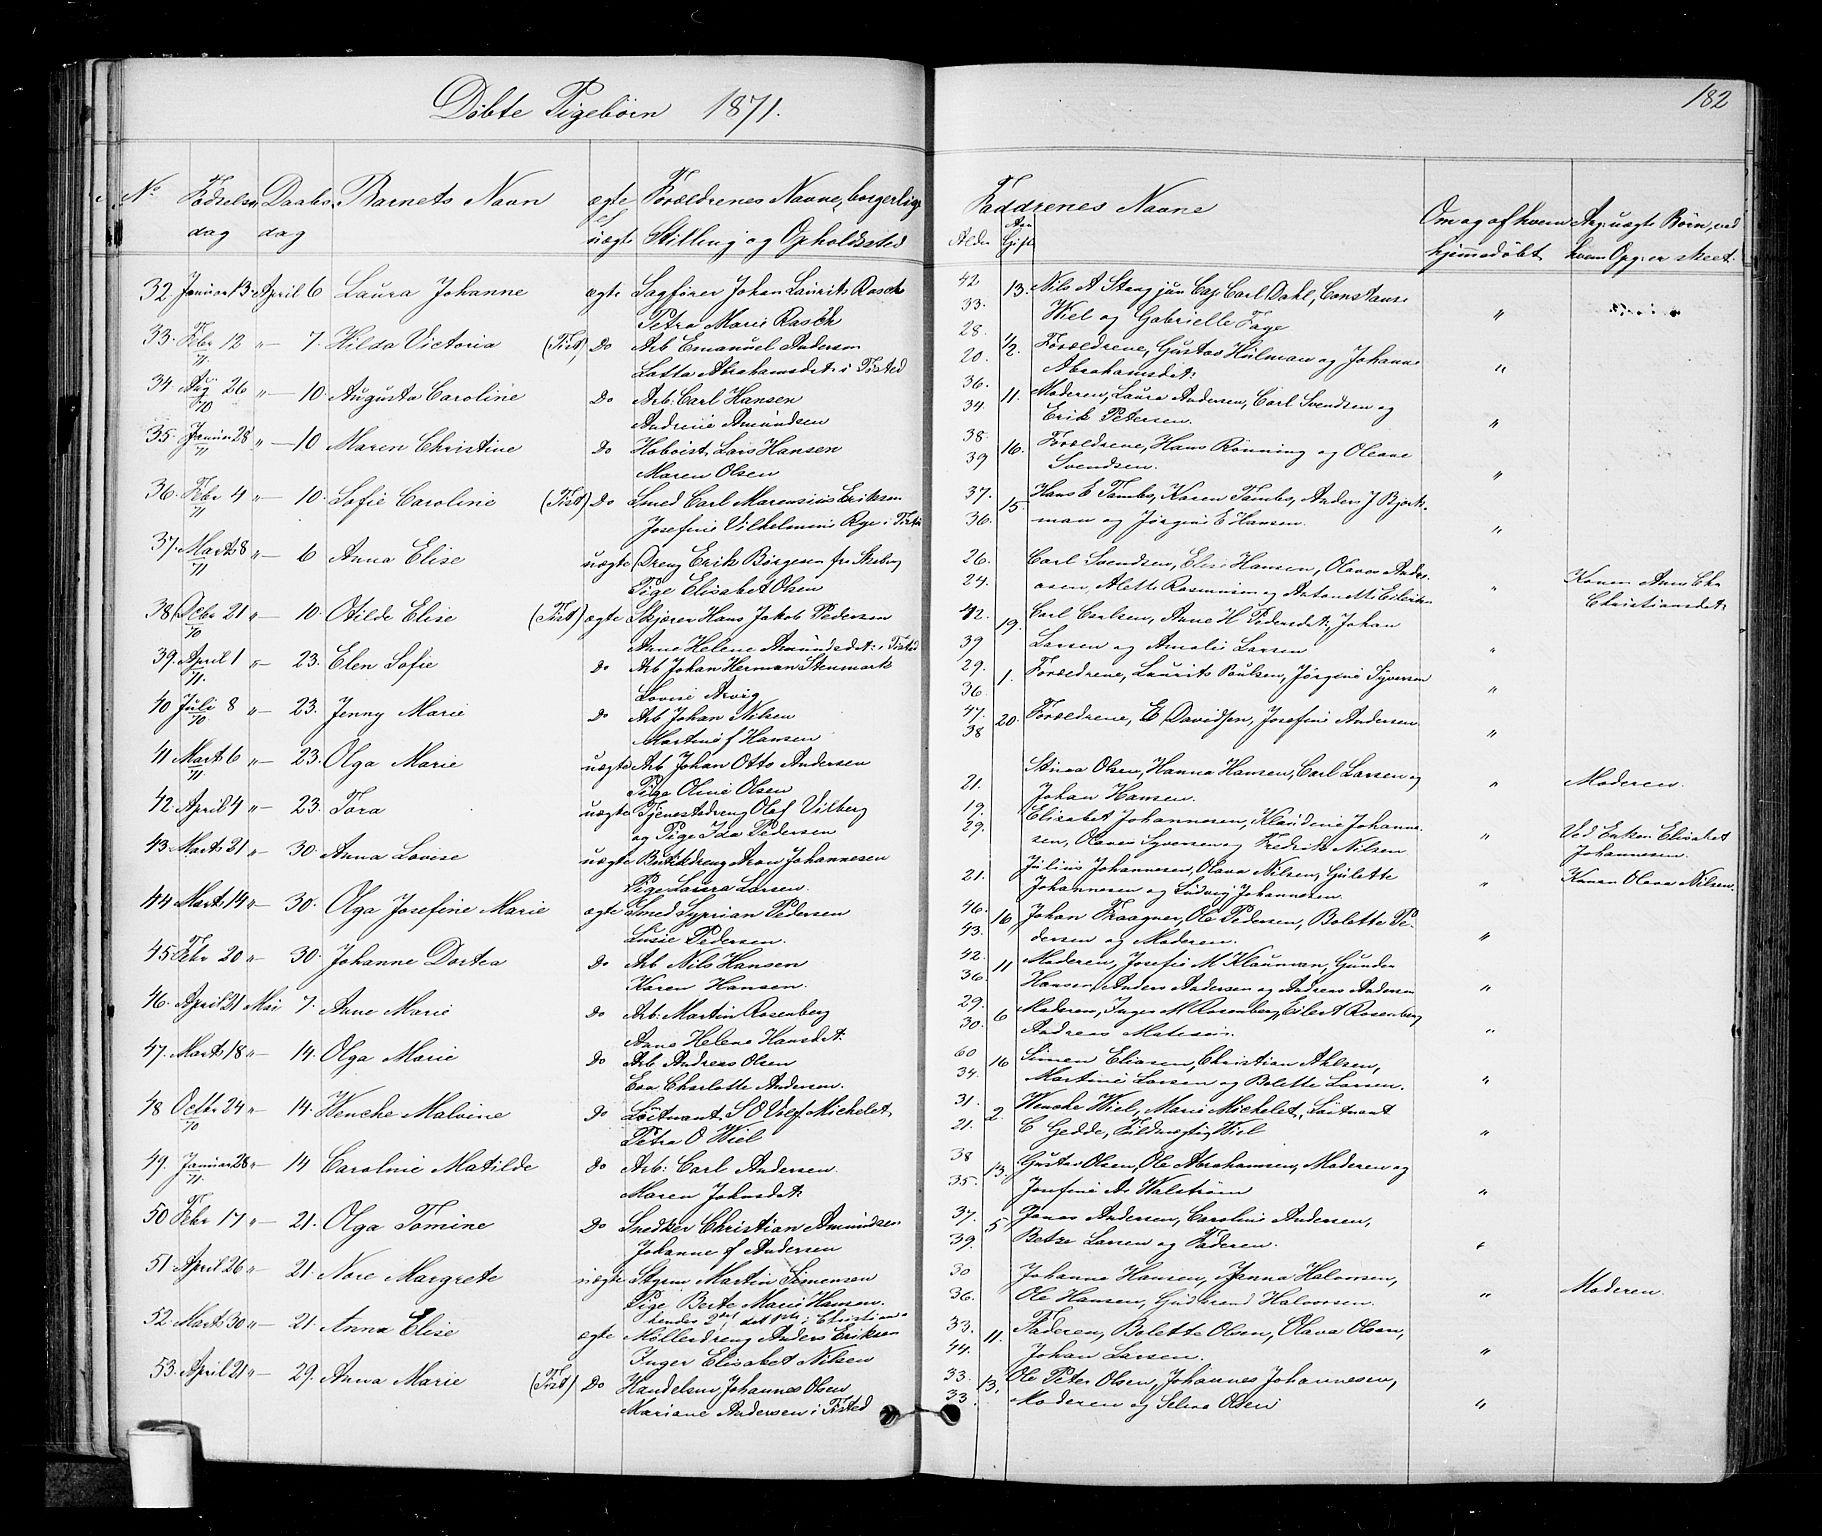 Döbte Pigebörn 1871.
182
No Födsels Daabs Barnets Navn ægte Forældrenes Navne, borgerlig
dag dag el uægte Stilling og Opholdssted
Faddrenes Navne
Alder Aar Gift
Om og af hvem hjemmedöbt
Ang: uægte Börn, ved hvem Opg: er skeet.
32. Januar 13 April 6 Laura Johanne ægte Sagförer Johan Laurits Rasch
Petra Marie Rasch
42 33. 13. Nils A Stang jun Cap Carl Dahl, Constanse
Wiel og Gabrielle Faye "
33. Febr 12 71 " — 7. Hilda Victoria (Tist) Do Arb Emanuel Andersen
Lotta Abrahamsdat: i Tisted
28. 20. 1/2. Forældrene, Gustav Hülman og Johanne
Abrahamsdet: "
34 Aug 26 70 " — 10. Augusta Caroline Do Arb: Carl Hansen
Andrine Amundsen
36. 34. 11. Moderen, Laura Andersen, Carl Svendsen og
Erik Petersen. "
35. Januar 28 71 " — 10 Maren Christine Do Hoboist Lars Hansen
Maren Olsen
38. 39 16. Forældrene, Hans Rönning og Oleane
Svendsen. "
36. Febr 4 71 " — 10. Sofie Caroline (Tist) Do Smed Carl Marensius Eriksen
Josefine Vilhelmine Rye i Tist
37. 36. 15. Hans E Tambs, Karen Tambs, Anders J Bjork-
man og Jörgine E Hansen. "
37. Marts 8 71 " — 6 Anna Elise uægte Dreng Erik Börgesen fra
Pige Elisabet Olsen
26. 24. Carl Svendsen, Elise Hansen, Olavus Andre-
asen, Alette Rasmussen og Antonette Eilertsen "
Konen Anne Chr
Christiansdet:
38 Debr 21 70 " — 10. Otilde Elise (Tist) ægte Skjærer Hans Jakob Pedersen
Anne Helene Amundsdet: i Tisted
42. 39 19. Carl Carlsen, Anne H Pedersdet:, Johan
Larsen og Amalie Larsen "
39. April 1 71. " — 23. Elen Sofie Do Arb Johan Herman Stenmark
Lovise Arvig
29. 36. 1. Forældrene, Laurits Poulsen, Jörgine Syversen "
40 Juli 8 70 " — 23. Jenny Marie Do Arb Johan Nilsen
Martine f Hansen
47. 38 20. Forældrene, E Davidsen, Josefine Andersen. "
41 Marts 6 71. " — 23. Olga Marie uægte Arb Johan Otto Andersen
Pige Oline Olsen
21. Stina Olsen, Hanna Hansen, Carl Larsen og
Johan Hansen. " Moderen.
42. April 4 " — 23. Tora uægte Tjenestedreng Olaf Vilberg
og Pige Ida Pedersen
19. 29. Elisabet Johannesen, Klaudine Johanne-
sen, Olaves Syversen og Fredrik Nilsen "
Ved Enken Elisabet
Johannesen.
43. Marts 21 " — 30. Anna Lovise uægte Butikdreng Aron Johannesen
Pige Laura Larsen.
21. Julius Johannesen, Olava Nilsen, Gulette
Johannesen og Ludvig Johannesen. " Konen Olava Nilsen.
44. Marts 14 " — 30. Olga Josefine Marie ægte Smed Syprian Pedersen
Lusie Pedersen.
46. 43. 16 Johan Kraagner, Ole Pedersen, Bolette Pe-
dersen og Moderen. "
45 Febr 20 " — 30. Johanne Dortea Do Arb Nils Hansen
Karen Hansen.
42. 36. 11 Moderen, Josefie M Klauman, Gunder
Hansen, Anders Andersen og Andreas Andersen "
46. April 21 Mai 7. Anne Marie Do Arb: Martin Rosenberg
Anne Helene Hansdet.
29. 30. 6 Moderen, Inger M Rosenberg, Eilert Rosenberg
Andreas Matisen. "
47. Marts 18 " — 14. Olga Marie Do Arb Andreas Olsen
Eva Charlotte Andersen.
60 34. 16 Simen Eliasen, Christian Ahlsen,
Martine Larsen og Bolette Larsen. "
48 Octbr 24 70 " — 14. Wenche Malvine Do Löitnant S O Volf Michelet
Petra O Wiel
31. 21. 2. Wenche Wiel, Marie Michelet, Löitnant
C Gedde, Fuldmægtig Wiel "
49. Januar 28 71. " — 14 Caroline Matilde Do Arb: Carl Andersen.
Maren Johnsdet:
38 35. 13. Gustav Olsen, Ole Abrahamsen, Moderen og
Josefine A. Walström "
50 Febr 17 " — 21. Olga Tomine Do Snedker Christian Amundsen
Johanne f Andersen
37. 39. 5. Jonas Andersen, Caroline Andersen,
Betze Larsen og Faderen. "
51. April 26 " — 21. Nore Margrete uægte Styrm Martin Simensen
Pige Berte Marie Hansen.
hendes 2det, det 1ste i Christiana
30 36. Johanna Hansen, Janna Halvorsen,
Ole Hansen, Gudbrand Halvorsen. " Moderen.
52. Marts 30 " — 21. Anna Elise ægte Möllerdreng Anders Eriksen
Inger Elisabet Nilsen
33. 44. 11. Faderen, Bolette Olsen, Olava Olsen,
Johan Larsen. "
53. April 21 " — 29. Anna Marie (Tist) Do Handelsm Johannes Olsen
Mariane Andersen i Tisted
33. 33. 13. Ole Peter Olsen, Johannes Johannesen,
Moderen og Selma Olsen "